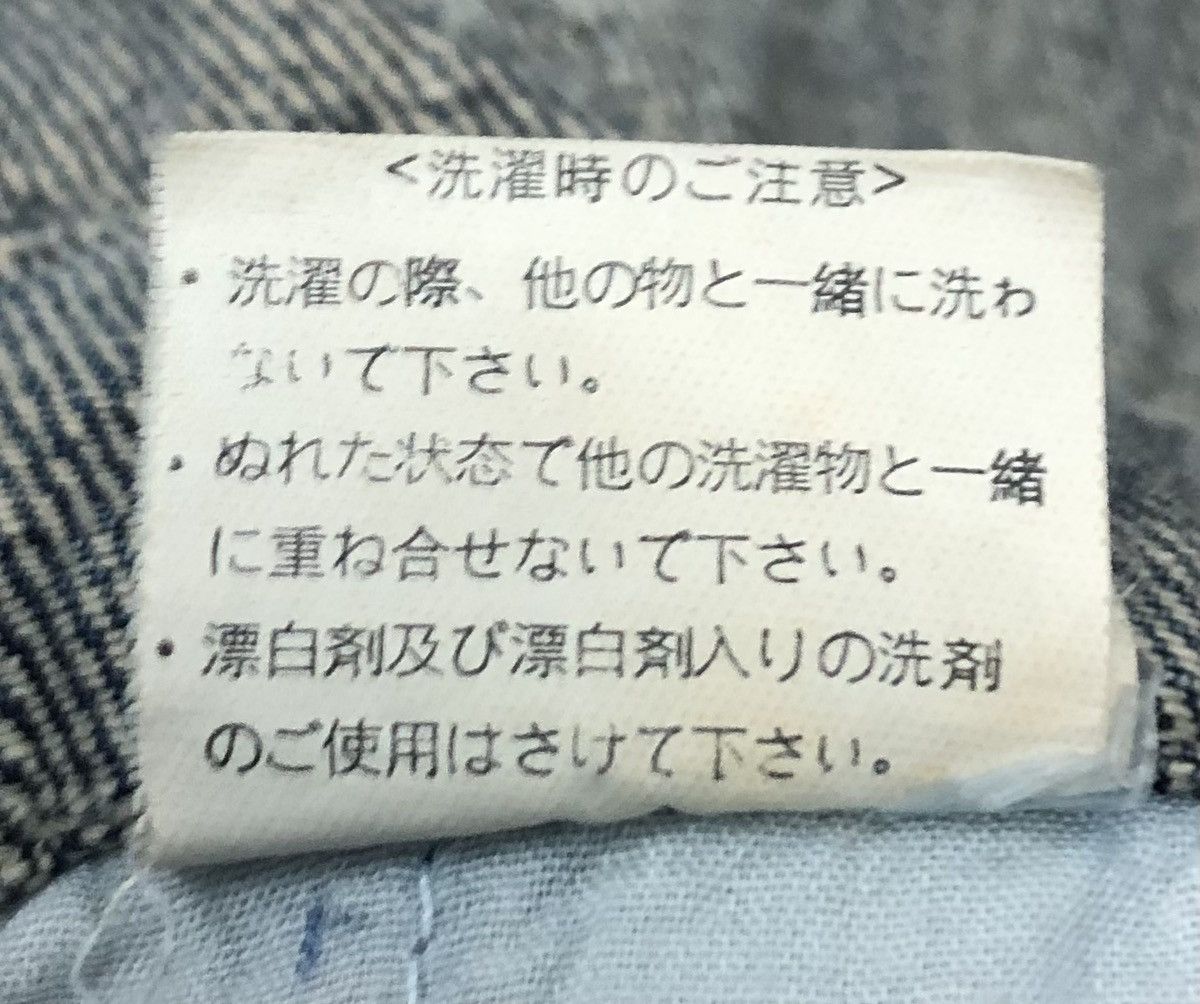 <洗濯時のご注意>
・洗濯の際、他の物と一緒に洗わ
ないで下さい。
・ぬれた状態で他の洗濯物と一緒
に重ね合せないで下さい。
・漂白剤及び漂白剤入りの洗剤
のご使用はさけて下さい。